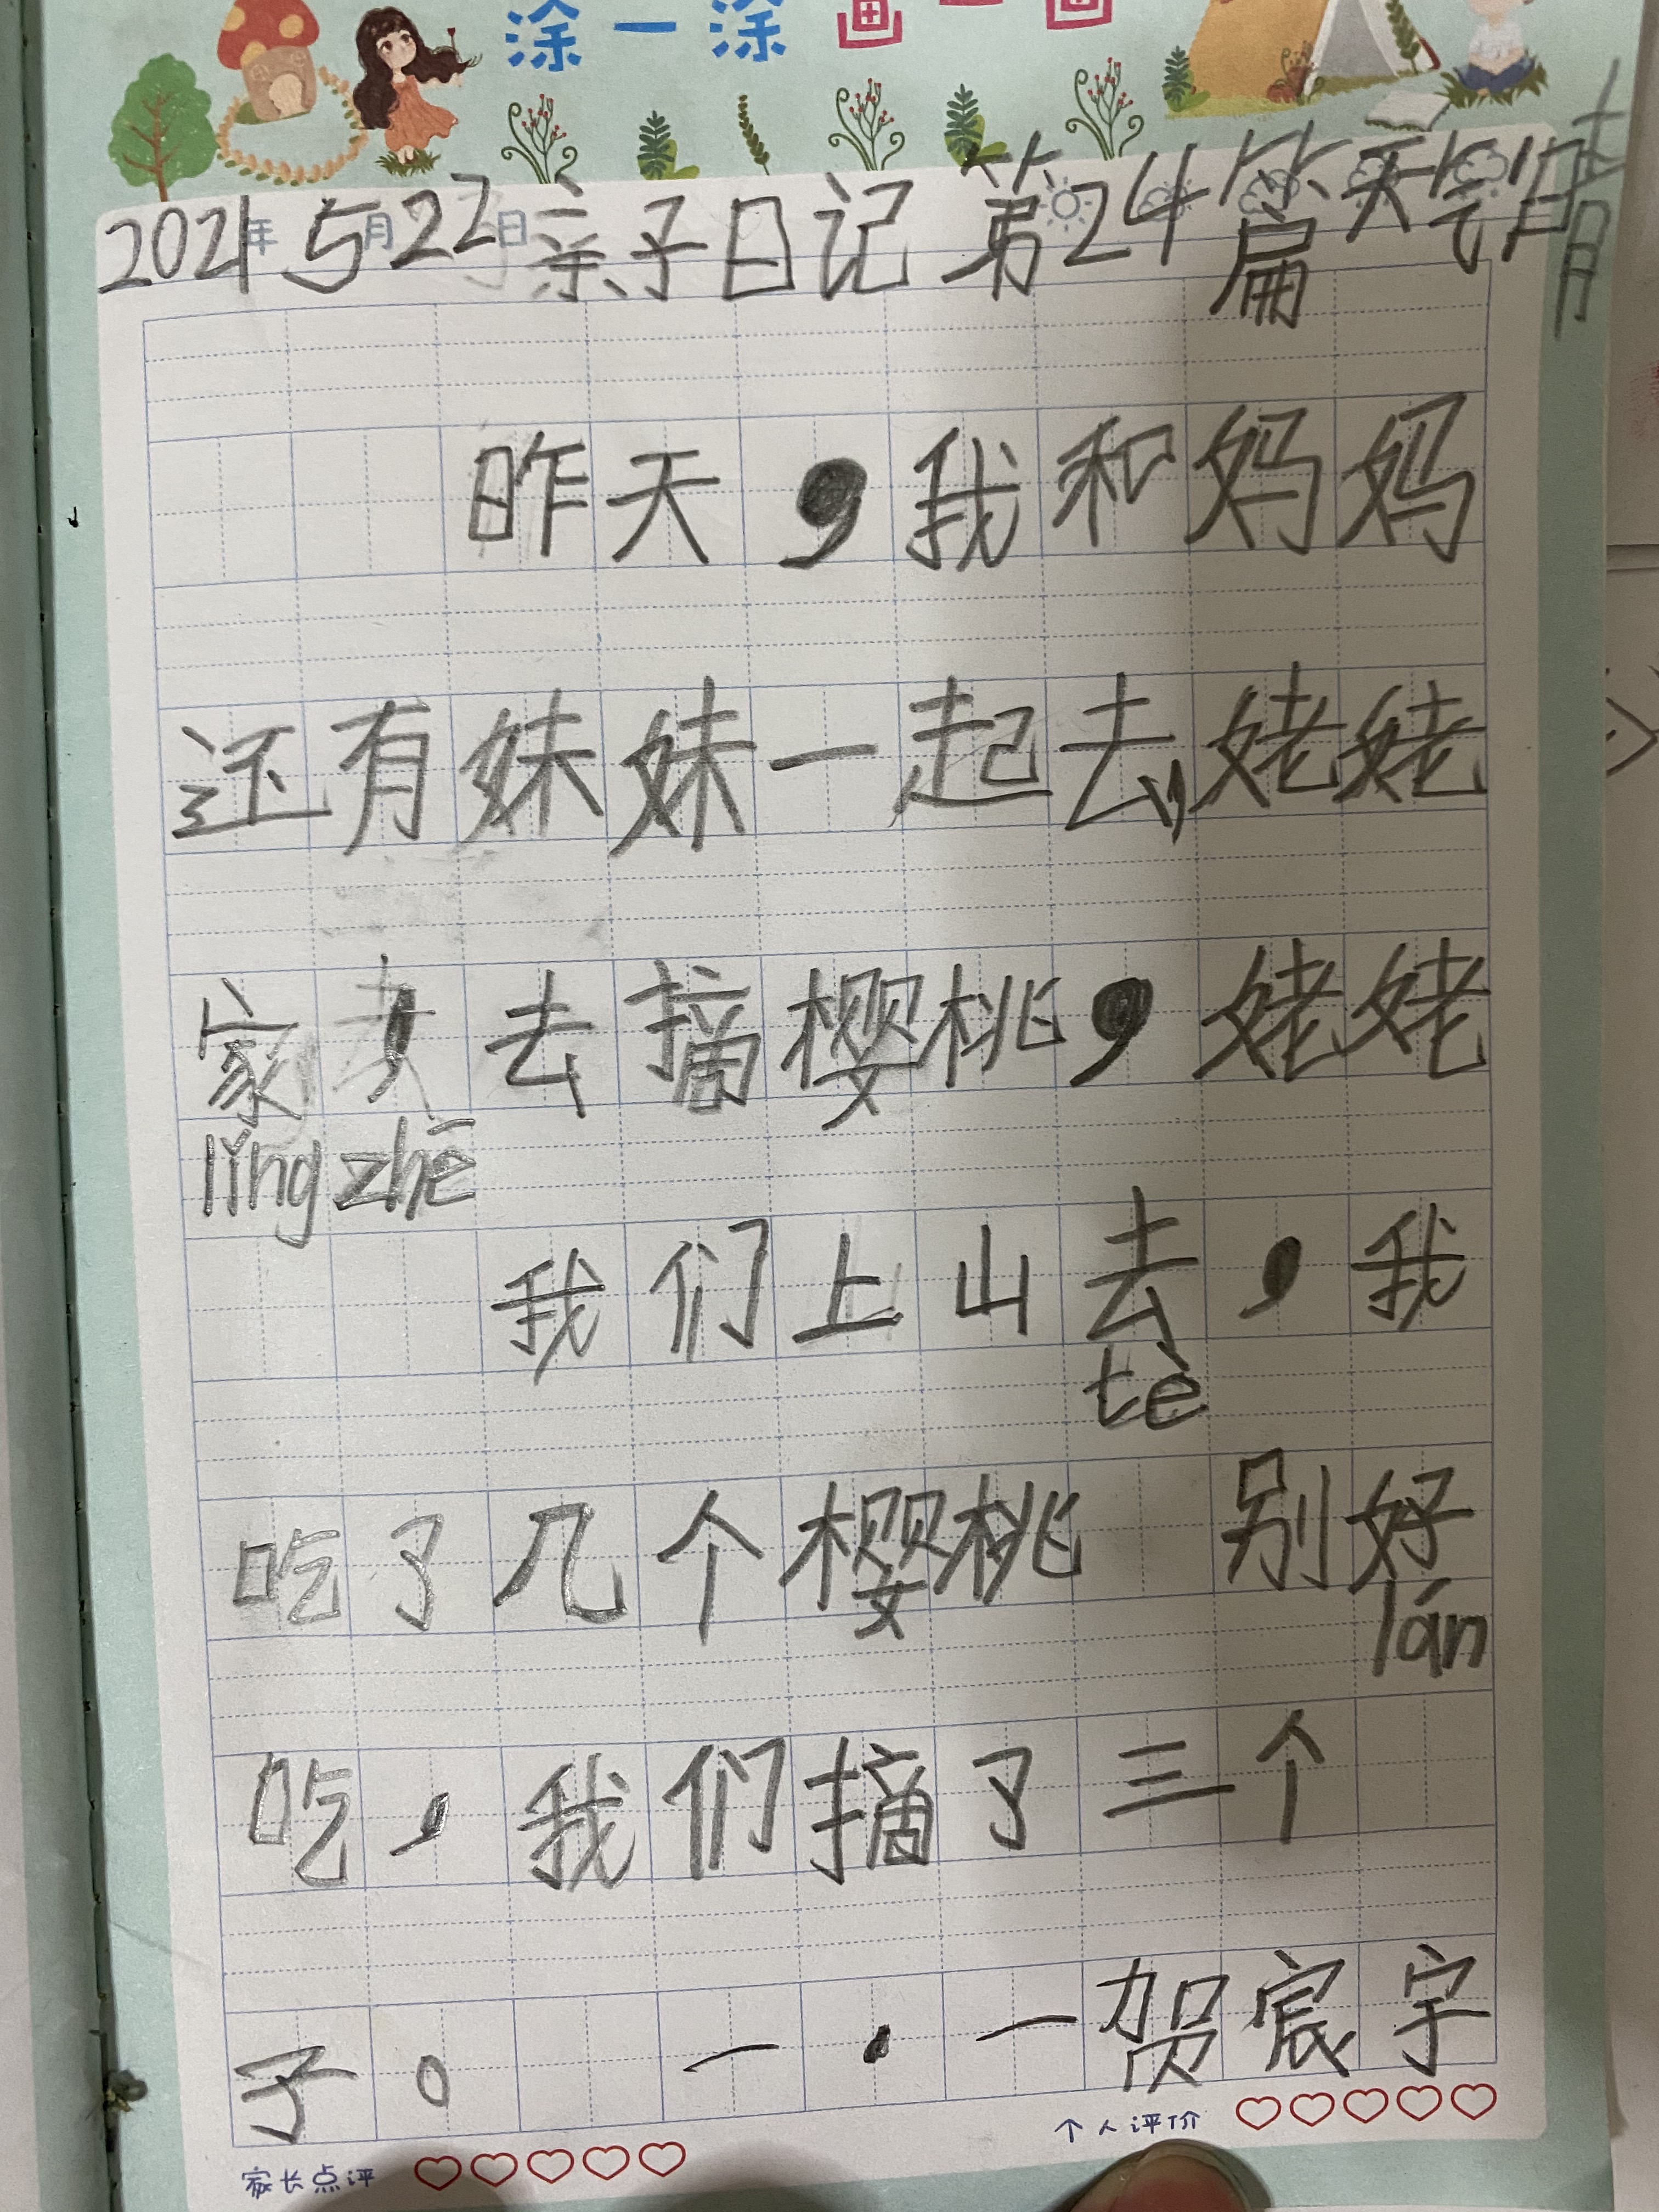 涂一涂 画一画
2021年5月22日亲子日记 第24篇 天气晴
昨天,我和妈妈
还有妹妹一起去,姥姥
家,去摘樱桃,姥姥
lǐng zhē
我们上山去,我
tè
吃了几个樱桃 别好
lán
吃,我们摘了三个
子。 一·一贺宸宇
家长点评 个人评价